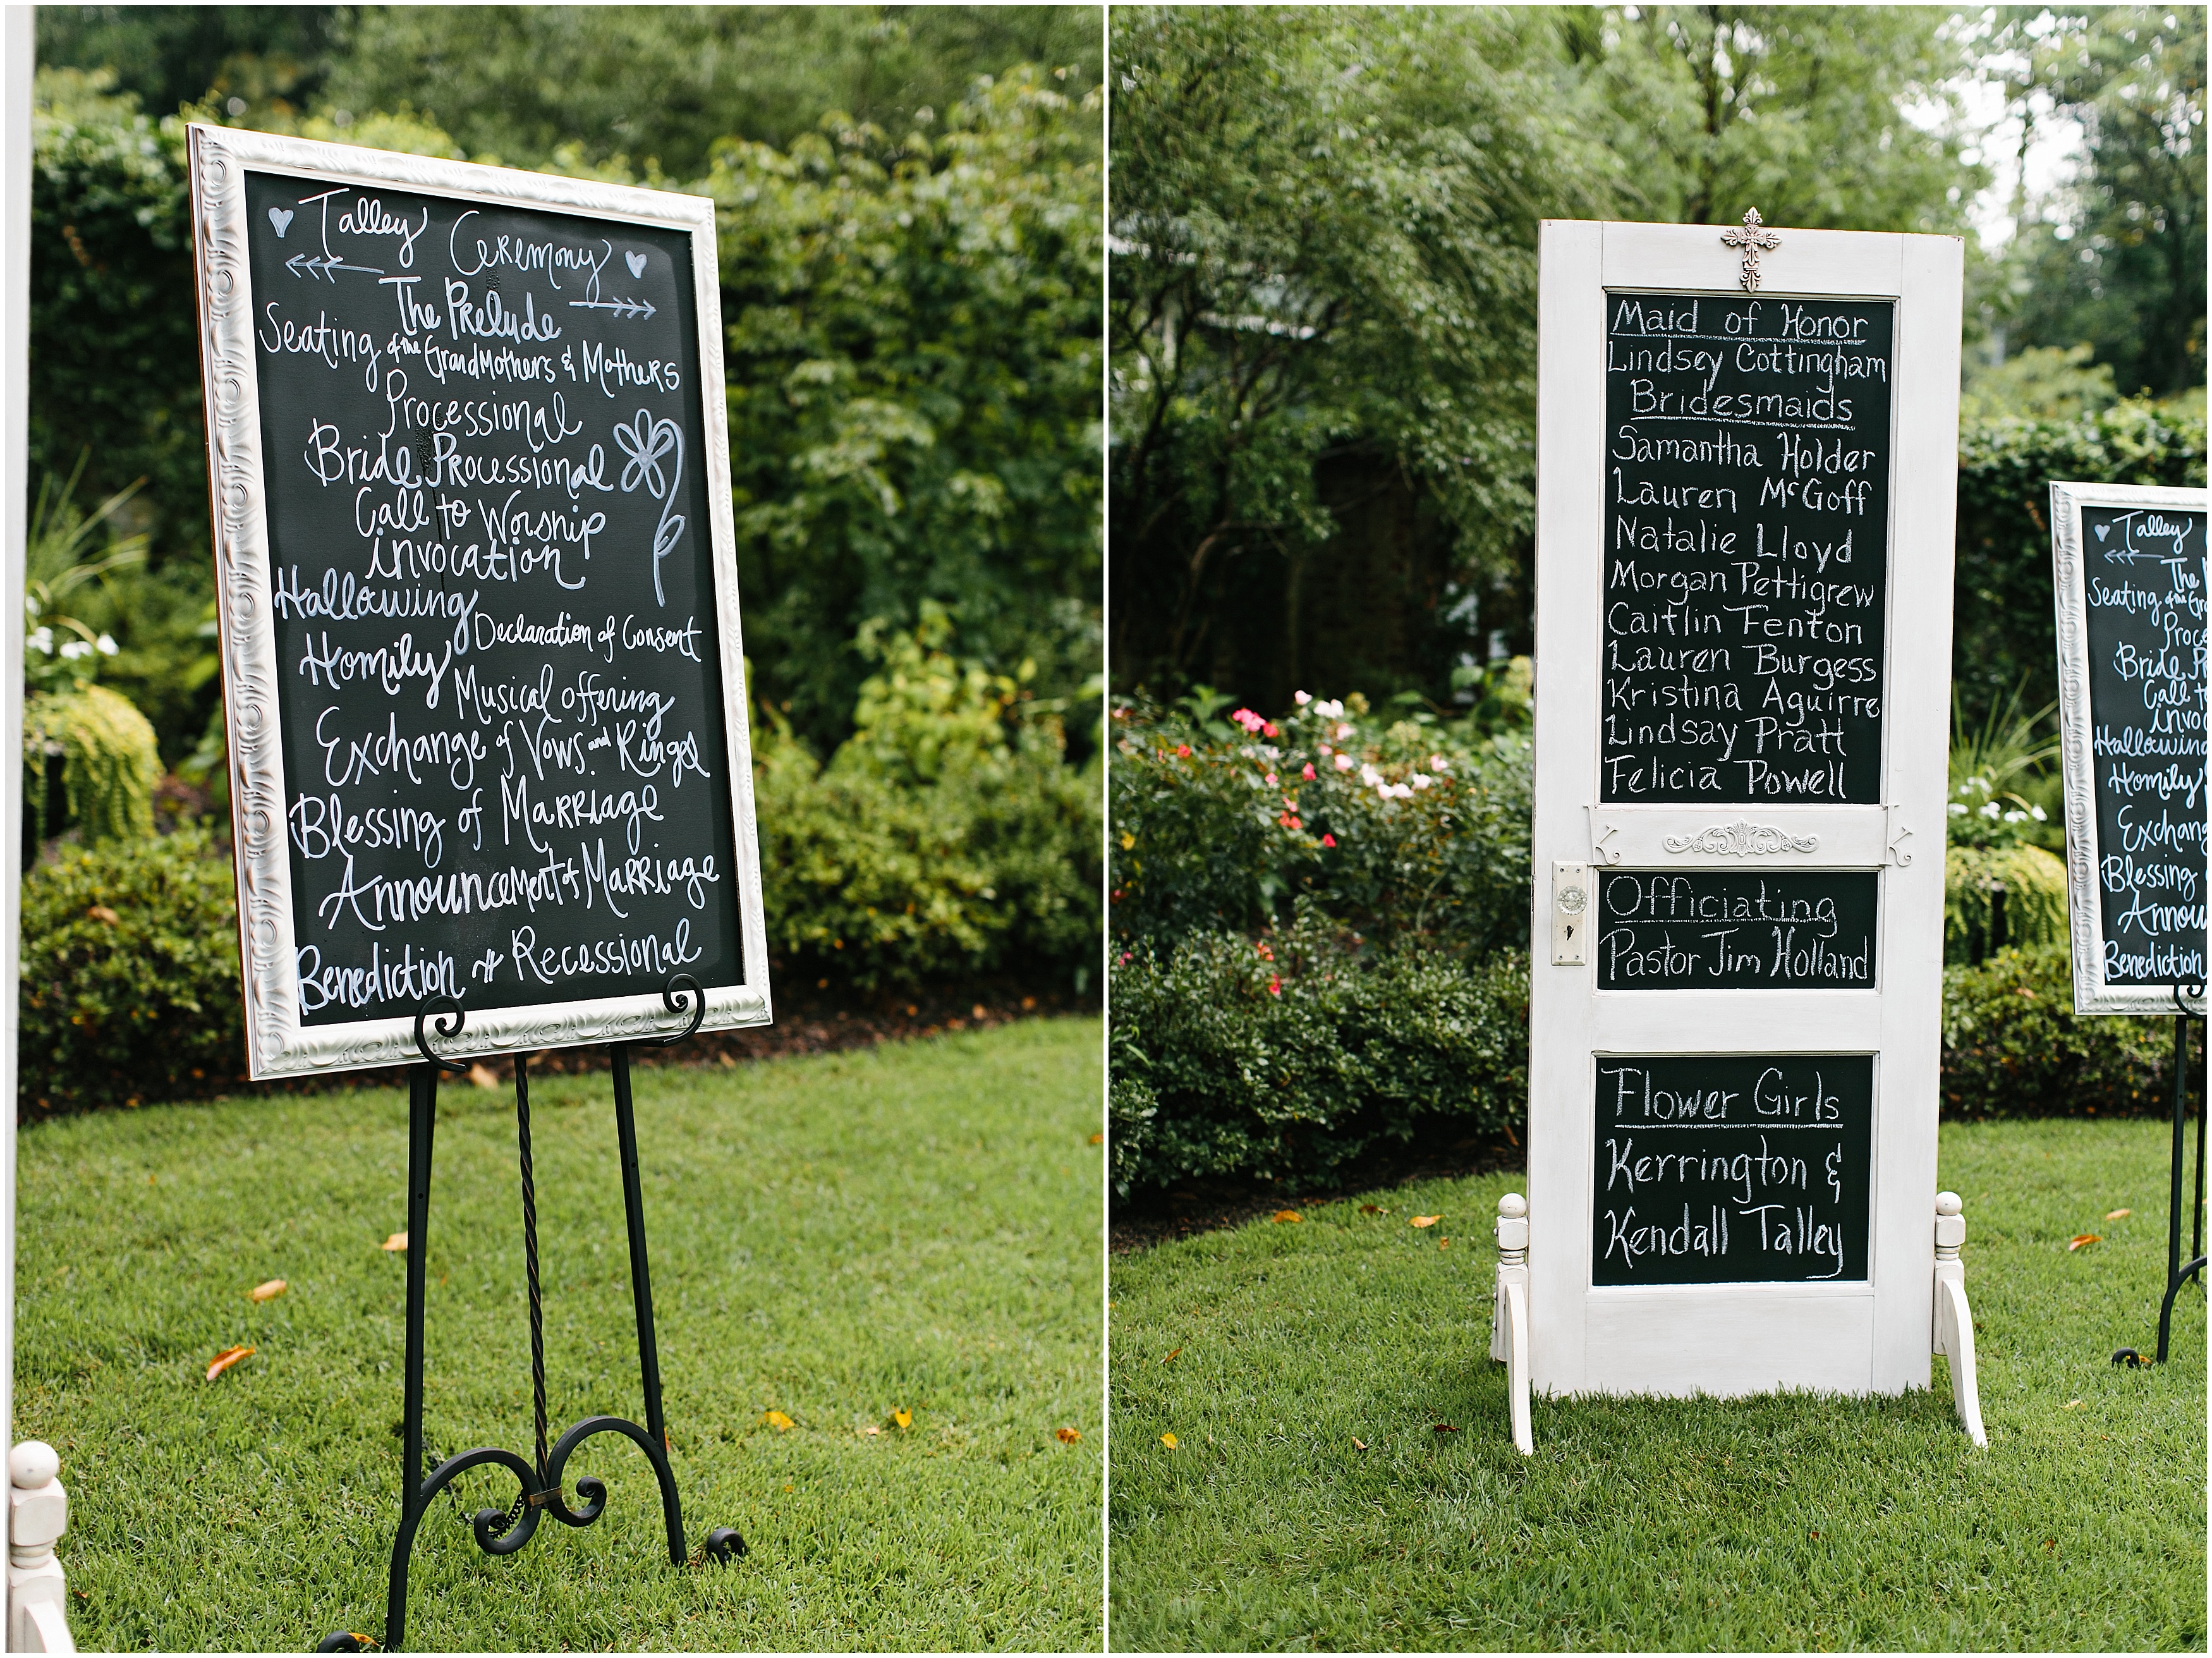 Talley Ceremony
The Prelude
Seating of the GrandMothers & Mothers
Processional
Bride Processional
Call to Worship
invocation
Hallowing
Declaration of Consent
Homily
Musical offering
Exchange of Vows and Rings
Blessing of Marriage
Announcement of Marriage
Benediction + Recessional
Maid of Honor
Lindsey Cottingham
Bridesmaids
Samantha Holder
Lauren McGoff
Natalie Lloyd
Morgan Pettigrew
Caitlin Fenton
Lauren Burgess
Kristina Aguirre
Lindsay Pratt
Felicia Powell
Officiating
Pastor Jim Holland
Flower Girls
Kerrington &
Kendall Talley
Talley
The
Seating of the
Bride
Call
Hallowing
Homily
Blessing
Benediction